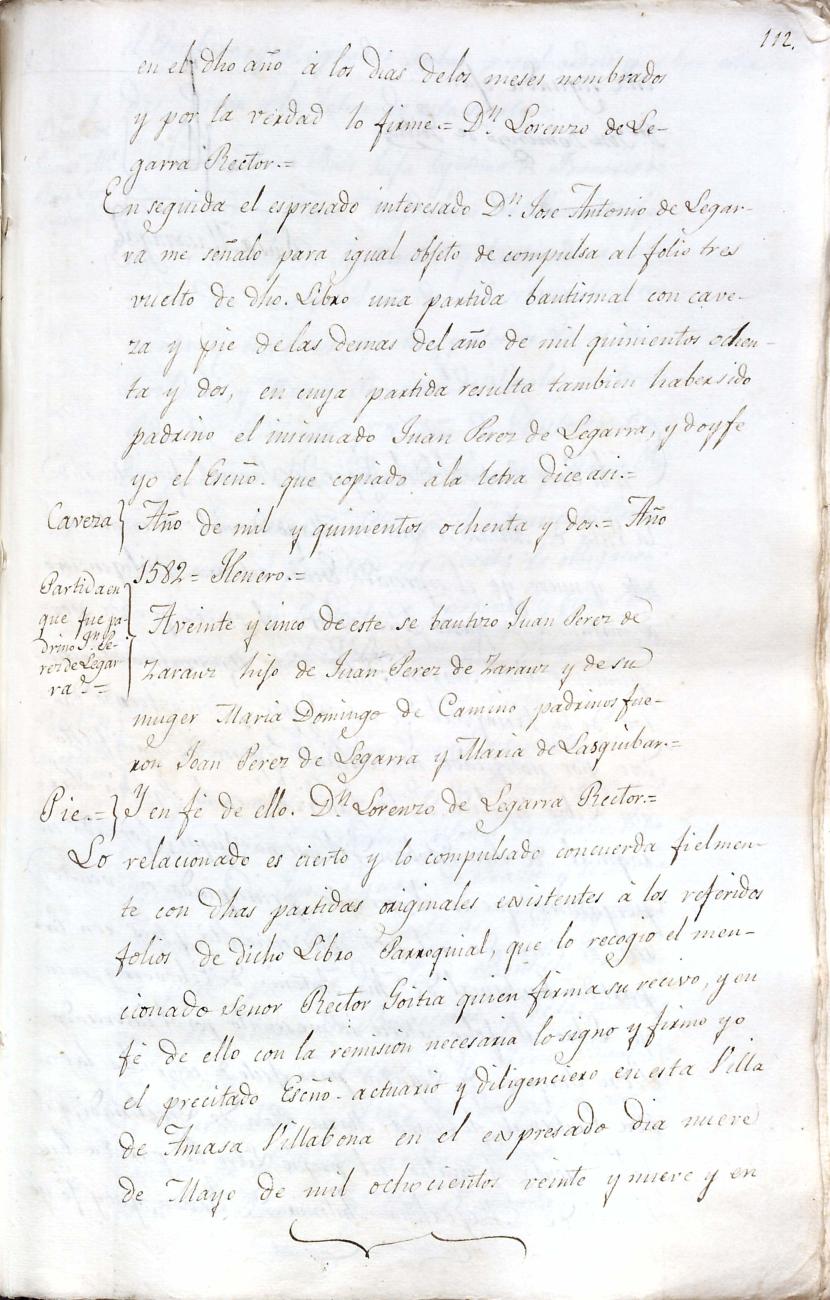 112.
en el dho año à los dias delos meses nombrados
y por la verdad lo firme.= Dn. Lorenzo de Le-
garra Rector.=
En seguida el espresado interesado Dn. Jose Antonio de Legar-
ra me señalo para igual objeto de compulsa al folio tres
vuelto de dho. Libro una partida bautismal con cave-
za y pie delas demas del año de mil quinientos ochen-
ta y dos, en cuya partida resulta tambien haber sido
padrino el insinuado Juan Perez de Legarra, y doyfe
yo el Escño. que copiado à la letra dice asi.=
Caveza} Año de mil y quinientos ochenta y dos.= Año
1582= Henero.=
Partida en
que fue pa-
drino Jn. Pe-
rez de Legar-
ra =
A veinte y cinco de este se bautizo Juan Perez de
Zarauz hijo de Juan Perez de Zarauz y de su
muger Maria Domingo de Camino padrinos fue-
ron Joan Perez de Legarra y Maria de Lasquibar.=
Pie.=} Y en fé de ello. Dn. Lorenzo de Legarra Rector.=
Lo relacionado es cierto y lo compulsado concuerda fielmen-
te con dhas partidas originales existentes à los referidos
folios de dicho Libro Parroquial, que lo recogio el men-
cionado Senor Rector Goitia quien firma su recivo, y en
fé de ello con la remision necesaria lo signo y firmo yo
el precitado Escño. actuario y diligenciero en esta Villa
de Amasa Villabona en el expresado dia nueve
de Mayo de mil ochocientos veinte y nueve y en